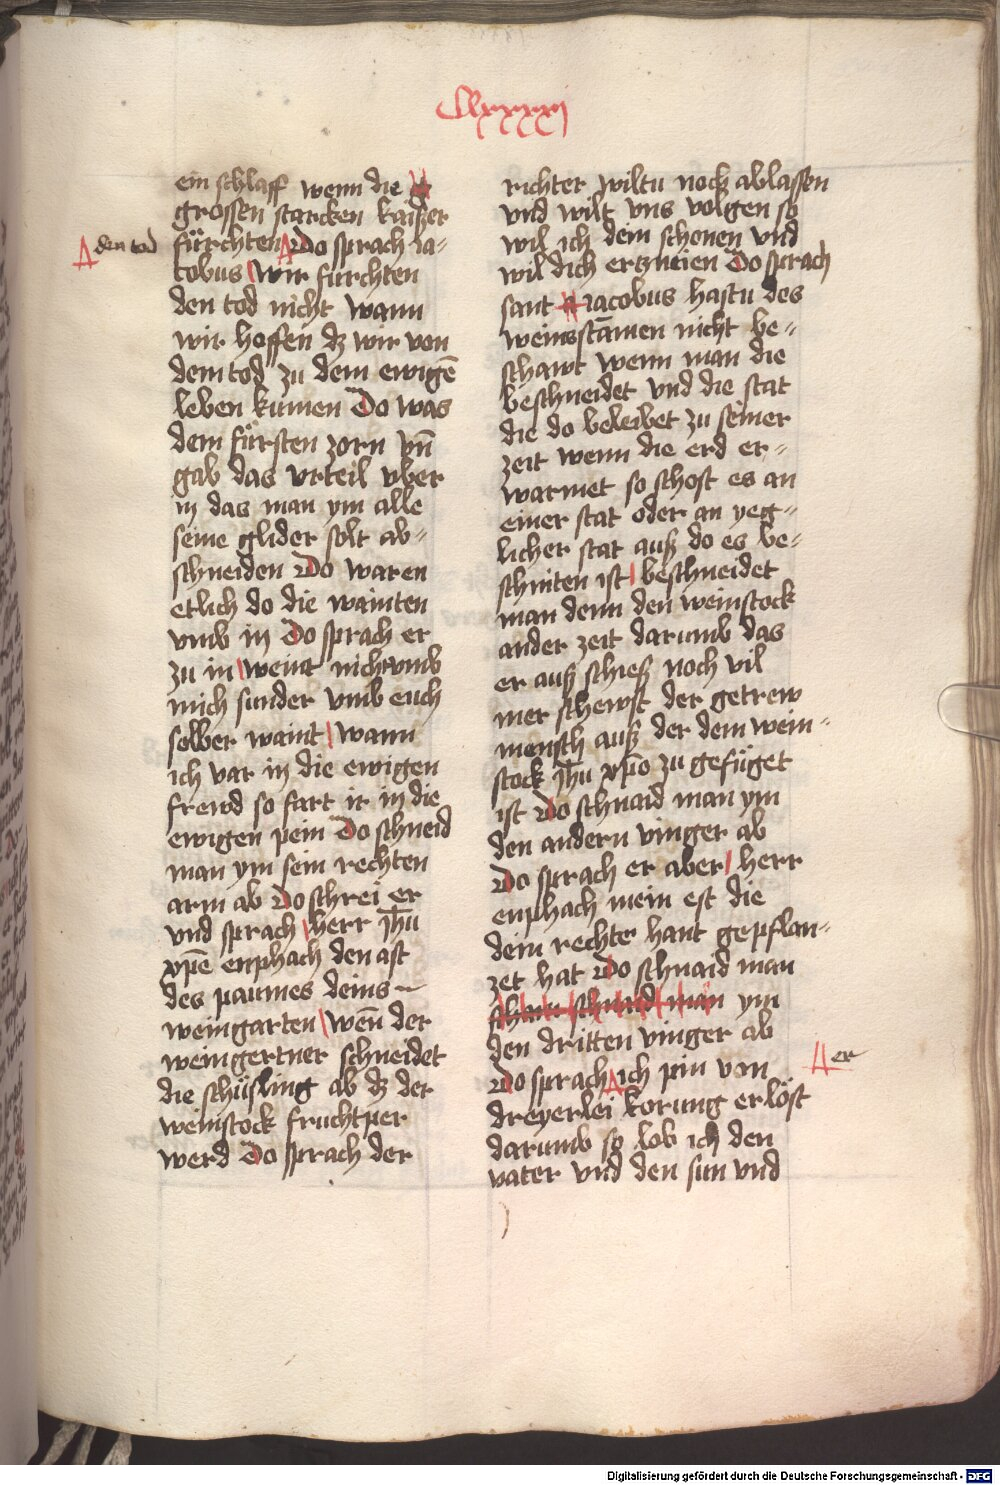 Clxxxxj
ein schlaff wenn die
grossen starcken kaißer
den tod
fürchten Do sprach ia-
cobus wir furchten
den tod nicht wann
wir hoffen dz wir von
dem tod zu dem ewigē
leben kumen Do was
dem fürsten zorn vn̄
gab das vrteil vber
in das man ym alle
seine glider solt ab=
schneiden Do waren
etlich do die wainten
vmb in Do sprach er
zu in weint nicht vmb
mich sunder vmb euch
selber waint wann
ich var in die ewigen
frewd so fart ir in die
ewigen pein Do schneid
man ym sein rechten
arm ab Do schrei er
vnd sprach herr ih̄u
xp̄e enphach den ast
des paumes deins
weingarten wen̄ der
weingertner schneidet
die schüsling ab dz der
weinstock fruchtper
werd Do sprach der
richter wiltu noch ablassen
vnd wilt vns volgen so
wil ich dem schonen vnd
wil dich ertzneien Do sprach
sant iacobus hastu des
weinsstāmen nicht be=
schawt wenn man die
beschneidet vnd die stat
die do beleibet zu seiner
zeit wenn die erd er=
warmet so schost es an
einer stat oder an yeg=
licher stat auß do es be=
schniten ist beschneidet
man denn den weinstock
ander zeit darumb das
er auß schieß noch vil
mer schewst der getrew
mensch auß der dem wein=
stock ih̄u xp̄o zu gefüget
ist Do schnaid man ym
den andern vinger ab
Do sprach er aber herr
enphach mein est die
dein rechte hant gepflan=
zet hat Do schnaid man
ym
den dritten vinger ab
er
Do sprach ich pin von
dreyerlei korung erlöst
darumb so lob ich den
vater vnd den sun vnd
Digitalisierung gefördert durch die Deutsche Forschungsgemeinschaft - DFG